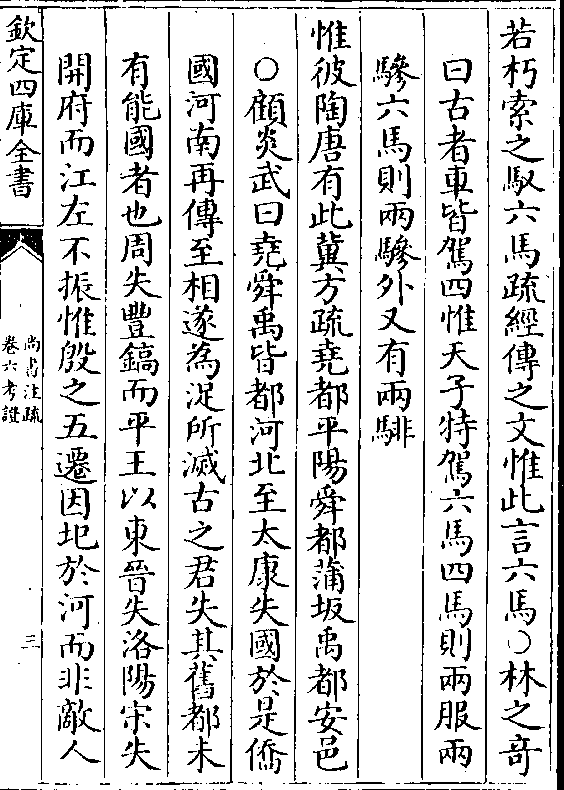 若朽索之馭六馬疏經傳之文惟此言六馬○林之奇
曰古者車皆駕四惟天子特駕六馬四馬則兩服兩
驂六馬則兩驂外又有兩騑
惟彼陶唐有此冀方疏堯都平陽舜都蒲坂禹都安邑
○顧炎武曰堯舜禹皆都河北至太康失國於是僑
國河南再傳至相遂為浞所滅古之君失其舊都未
有能國者也周失豐鎬而平王以東晉失洛陽宋失
開府而江左不振惟殷之五遷因圯於河而非敵人
欽定四庫全書
尚書注疏
卷六考證
三